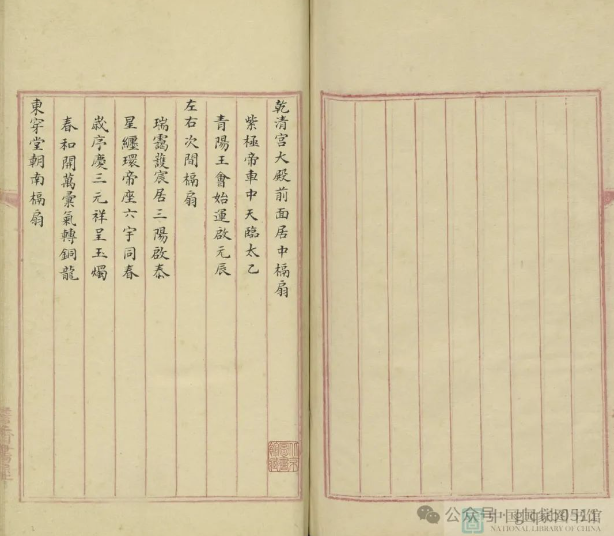 乾清宫大殿前面居中槅扇
紫極帝車中天臨太乙
青陽王會始運啟元辰
左右次間槅扇
瑞靄護宸居三陽啟泰
星纏環帝座六宇同春
歲序慶三元祥呈玉燭
春和開萬彙氣轉銅龍
東穿堂朝南槅扇
公众号
中国国家图书馆
NATIONAL LIBRARY OF CHINA